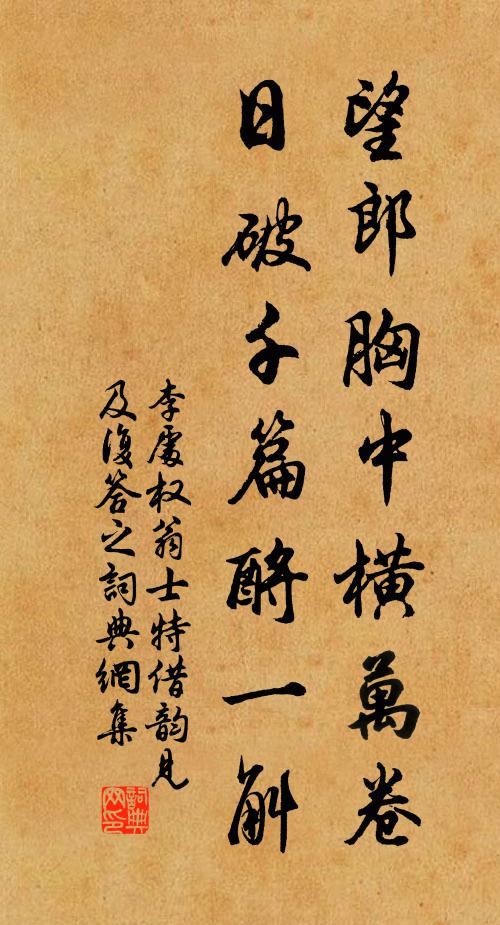 望郎胸中橫萬卷
日破千篇酹一斛
李處权翁士特借韵見
及復答之詞典網集
詞典
网印